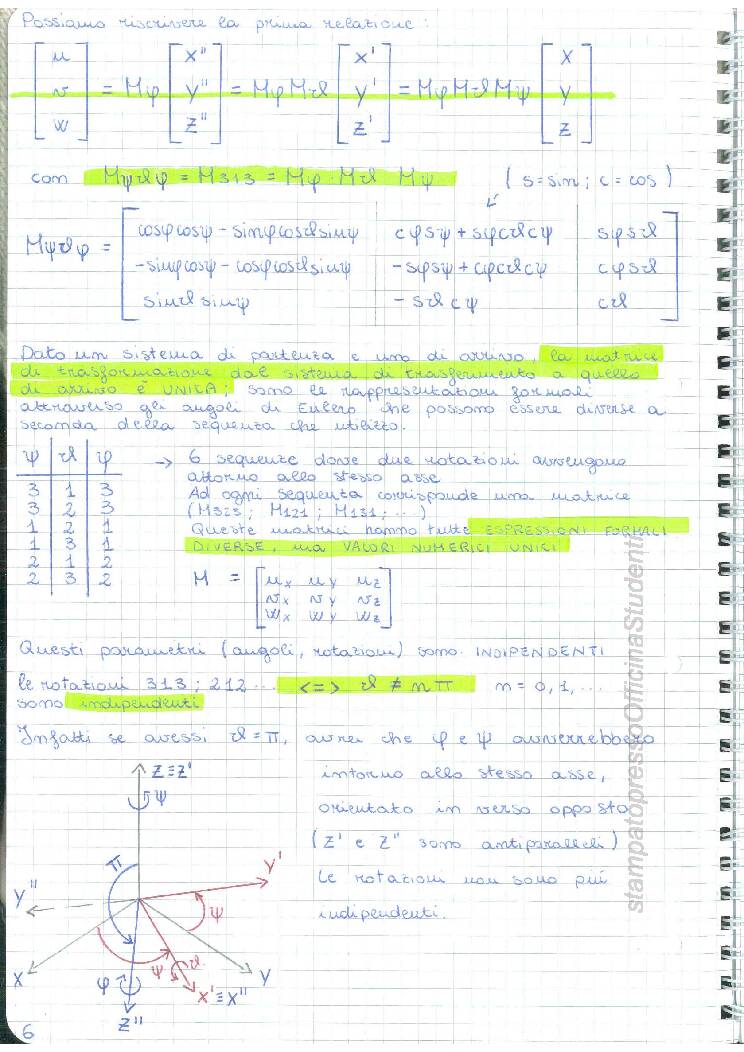 Possiamo riscrivere la prima relazione:
[u v w] = Mφ [x'' y'' z''] = Mφ Mϑ [x' y' z'] = Mφ Mϑ Mψ [x y z]
con Mψϑφ = M313 = Mφ · Mϑ Mψ (s=sin; c=cos)
cosφcosψ - sinφcosϑsinψ | cφsψ + sφcϑcψ | sφsϑ
Mψϑφ = -sinφcosψ - cosφcosϑsinψ | -sφsψ + cφcϑcψ | cφsϑ
sinϑ sinψ | - sϑ cψ | cϑ
Dato un sistema di partenza e uno di arrivo, la matrice
di trasformazione dal sistema di trasferimento a quello
di arrivo è UNICA; sono le rappresentazioni formali
attraverso gli angoli di Eulero che possono essere diverse a
seconda della sequenza che utilizzo.
ψ ϑ φ
3 1 3
3 2 3
1 2 1
1 3 1
2 1 2
2 3 2
→ 6 sequenze dove due rotazioni avvengono
attorno allo stesso asse
Ad ogni sequenza corrisponde una matrice
(M323; M121; M131; ...)
Queste matrici hanno tutte ESPRESSIONI FORMALI
DIVERSE, ma VALORI NUMERICI UNICI
ux uy uz
M = vx vy vz
wx wy wz
Questi parametri (angoli, rotazioni) sono INDIPENDENTI
le rotazioni 313; 212 ... <=> ϑ ≠ nπ n = 0,1,...
sono indipendenti
Infatti se avessi ϑ=π, avrei che φ e ψ avverrebbero
intorno allo stesso asse,
orientato in verso opposto
(z' e z'' sono antiparalleli)
le rotazioni non sono più
indipendenti.
z≡z'
ψ
π
y'
y''
ψ
ψ
ϑ
x
y
φ
x'≡x''
z''
6
stampatopressoOfficinaStudenti